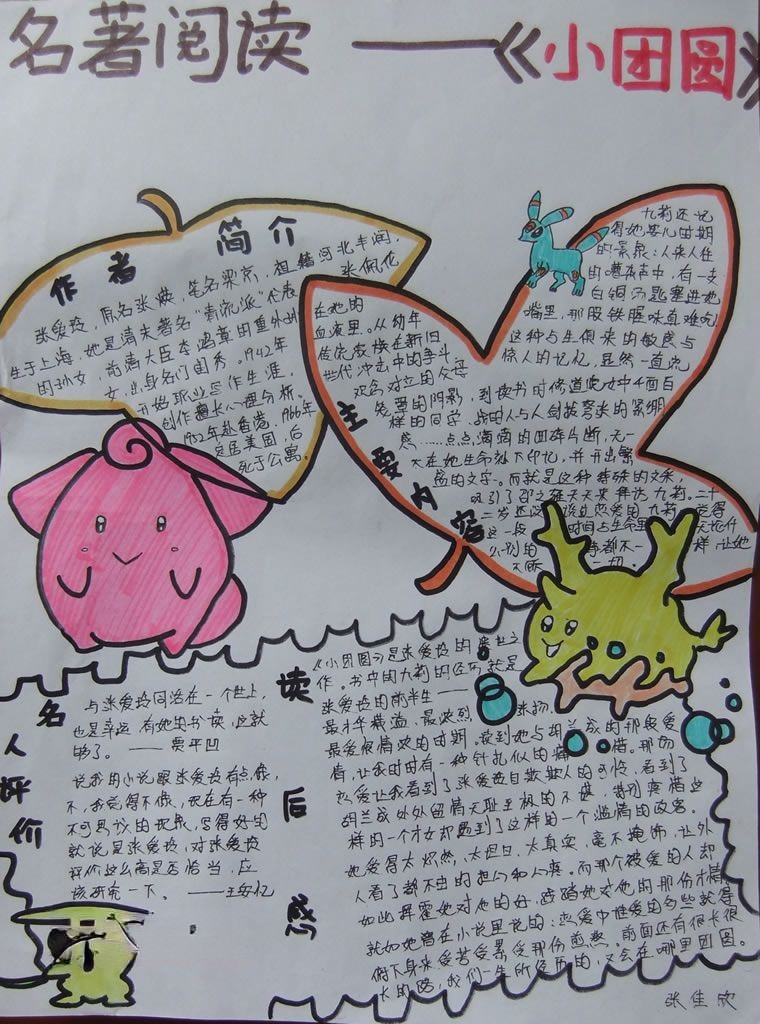 名著阅读 ——《小团圆》
作者简介
张爱玲,原名张煐,笔名梁京,祖籍河北丰润,
生于上海,她是清末著名"清流派"代表张佩纶
的孙女,前清大臣李鸿章的重外
女,出身名门闺秀。1942年
开始职业写作生涯,
创作擅长心理分析。
1952年赴香港,1966年
定居美国,后
死于公寓。
主要内容
九莉还记
得她婴儿时期
的景象:人来人往
的嘈杂声中,有一支
白铜汤匙塞进她
嘴里,那股铁腥味真难吃
这种与生俱来的敏感与
惊人的记忆,显然一直流
在她的
血液里。从幼年
传统家族在新旧
世代冲击中的争斗
观念对立的父母
的阴影,到读书时修道院女中千面百
样的同学、战时人与人剑拔弩张的紧绷
感……点点滴滴的回碎片断,无一
不在她生命刻下印记,并开出繁
盛的文字。而就是这种特殊的文采,
吸引了邵之雍天天来拜访九莉。二十
二岁还没谈过恋爱的九莉,觉得
这一段时间与生命里
的
不一样,让她
一切。
名人评价
与张爱玲同活在一个世上,
也是幸运,有她的书读,这就
够了。——贾平凹
说我的小说跟张爱玲有点像,
不,我觉得不像,现在有一种
不可思议的现象,写得好的
就说是张爱玲,对张爱玲
评价这么高是否恰当,应
该研究一下。——王安忆
读后感
《小团圆》是张爱玲的
作。书中的九莉的经历就是
张爱玲的前半生——
最才华横溢,最浓烈、张扬、
最爱恨情浓的时期。读到她与胡兰成的那段爱
情,让我时时有一种针扎似的痛惜。那场
恋爱让我看到了张爱玲自欺欺人的可怜,看到了
胡兰成处处留情无耻至极的不堪,特别惋惜这
样的一个才女却遇到了这样的一个滥情的政客。
她爱得太炽烈,太坦白、太真实,毫不掩饰,让外
人看了都不由的担心和心疼。而那个被爱的人却
如此挥霍她对他的好,践踏她对他的那份才情
就如她曾在小说里说的:恋爱中谁爱的多些就得
俯下身来受苦受累受那份煎熬。前面还有很长很
长的路,我们一生所经历的,又会在哪里团圆。
张佳欣